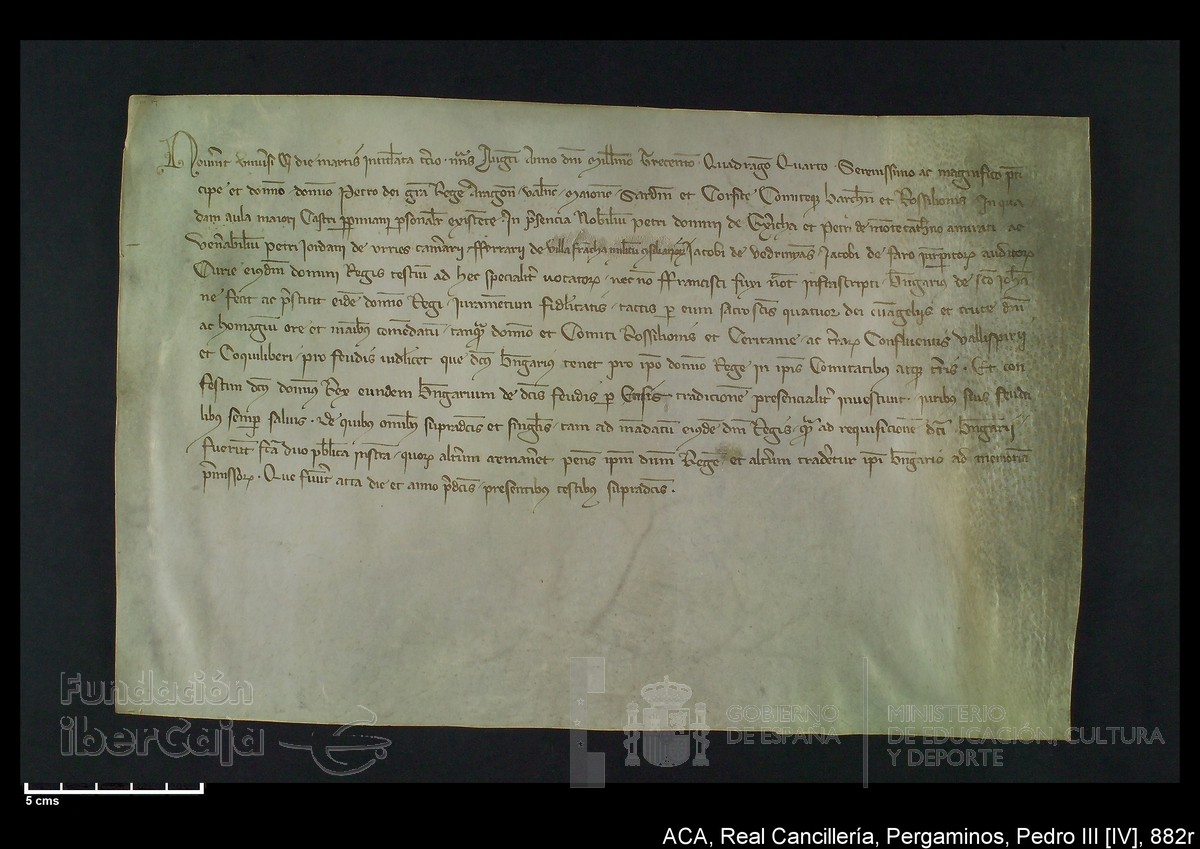 Noverint universi Qd die martis intitulata tercio nonas Augusti Anno dni Millmo Trecentmo Quadragmo Quarto. Serenissimo ac magnifico prin
cipe et domno domno Petro dei gra Rege Aragon valenc maioric Sardin et Corsice Comiteqz barchn et Rossilionis. In qua
dam aula maiori Castri perpiniani personalr existente. In presencia Nobiliu petri domini de Exericha et Petri de montecatheno amirati ac
venerabiliu petri jordani de urries camerarij fferrarij de villa francha militu consiliarioz Jacobi de vedrinyans Jacobi de faro auditoz
Curie eiusdem domini Regis testiu ad hec specialit vocatoz necno ffrancisci fuxi not infrascripti. Bngarius de sco Johan
ne fecit ac prestitit eide domno Regi iuramentum fidelitatis tactis p eum sacrosctis quatuor dei evangelijs et cruce dni
ac homagiu ore et manibz comedatu tanqua domno et Comiti Rossilionis et Ceritanie ac terraz Confluentis vallispirij
et Coquiliberi pro feudis videlicet que dcus Bngarius tenet pro ipo domno Rege in ipsis Comitatibus atqz terris. Et con
festim dcus domnus Rex eundem Bngarium de dcis feudis p Ensis tradicione presencialit investivit iuribus suis feuda
libus semper salvis. De quibus omibz supradcis et singlis tam ad madatu eiusde dni Regis qua ad requisicione dci Bngarij
fuerunt fca duo publica instra quoz alterum remaneret penes ipm dnm Regem et alterum traderetur ipi Bngario ad memoriam
premissoz. Que fuerunt acta die et anno predcis presentibus testibus supradcis.
Fundación
iberCaja
GOBIERNO
DE ESPAÑA
MINISTERIO
DE EDUCACIÓN, CULTURA
Y DEPORTE
5 cms
ACA, Real Cancillería, Pergaminos, Pedro III [IV], 882r